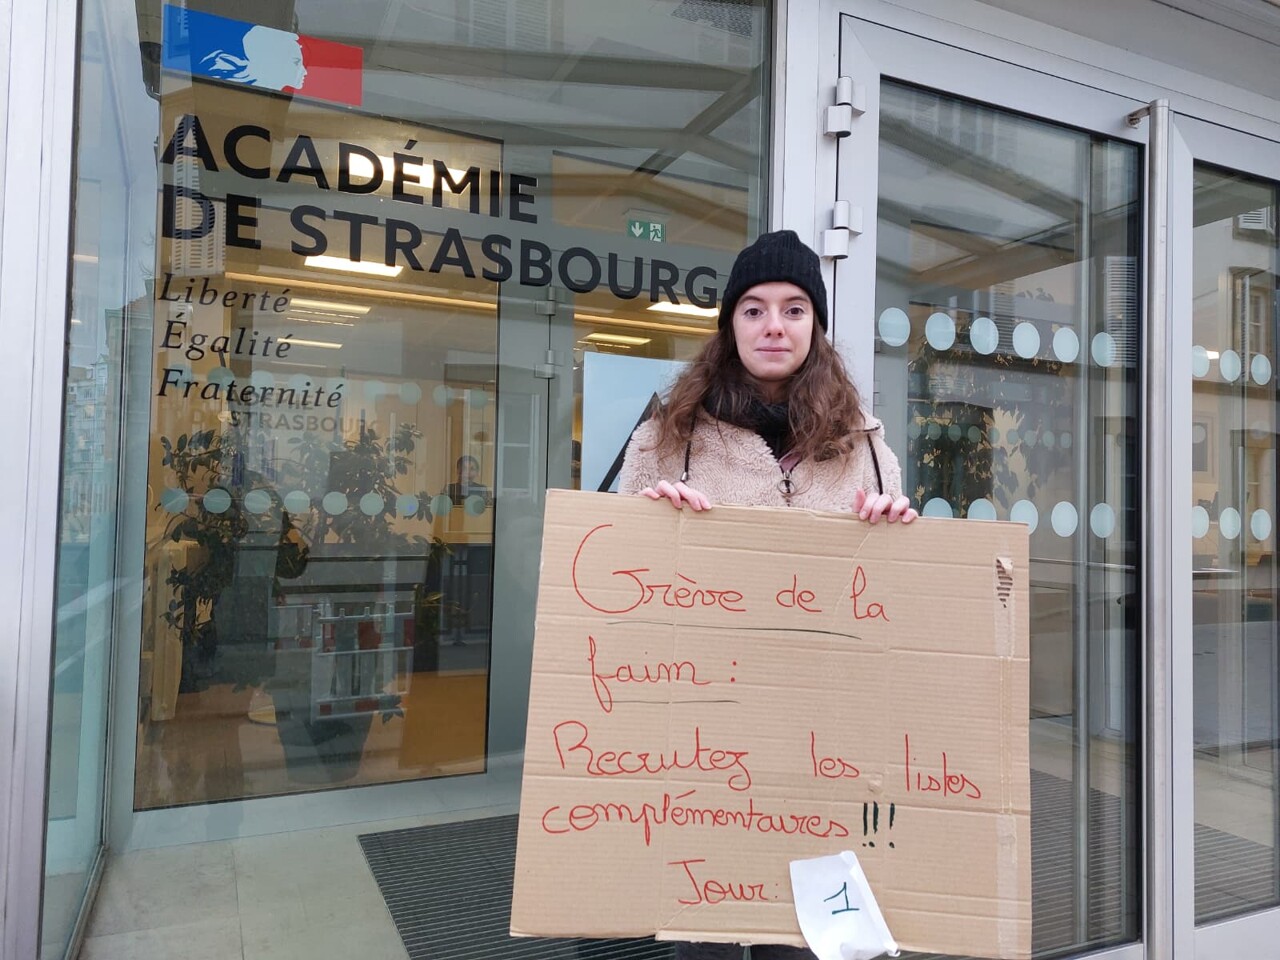 ACADÉMIE
DE STRASBOURG
Liberté
Égalité
Fraternité
STRASBOURG
Grève de la
faim :
Recrutez les listes
complémentaires !!!
Jour : 1